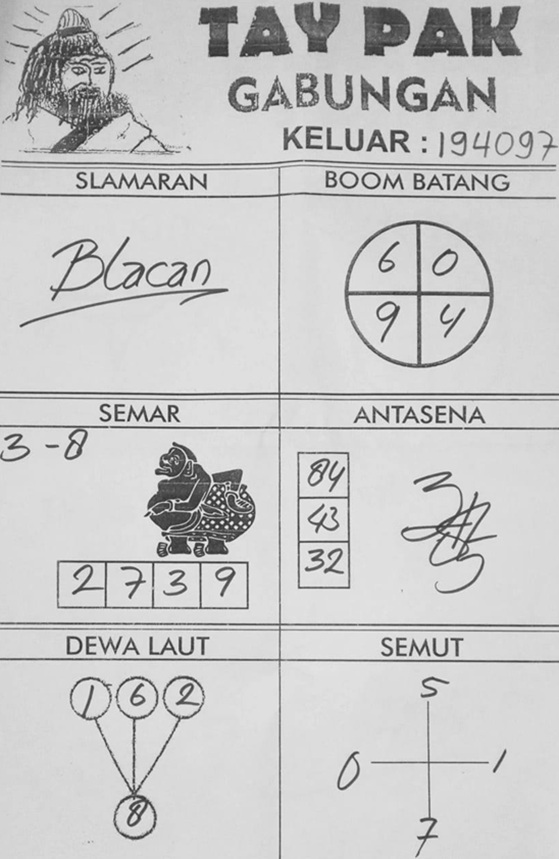 TAY PAK
GABUNGAN
KELUAR : 194097
SLAMARAN
Blacan
BOOM BATANG
6 0
9 4
SEMAR
3-8
2 7 3 9
ANTASENA
84
43
32
DEWA LAUT
1 6 2
8
SEMUT
5
0 1
7